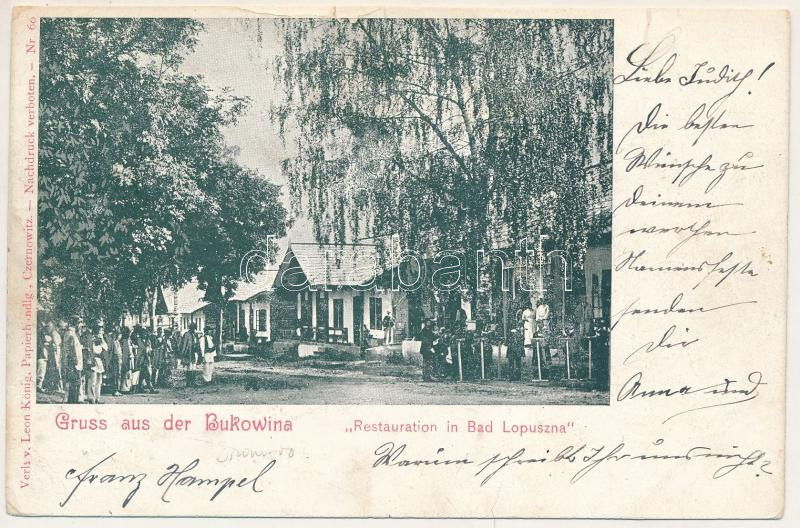 Verlg v. Leon König, Papierhandlg., Czernowitz. — Nachdruck verboten. — Nr 60
darabanth
Liebe Judith!
Die besten
Wünsche zu
Deinem
werthen
Namensfeste
senden
Dir
Anna und
Gruss aus der Bukowina
„Restauration in Bad Lopuszna"
Franz Hampel
Warum schreibt Ihr uns nicht?